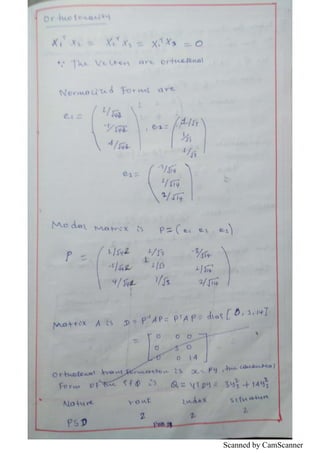 Orthogonality
X₁ᵀ X₂ = X₂ᵀ X₃ = X₁ᵀ X₃ = 0
∵ The Vectors are orthogonal
Normalized Forms are
e₁ = (1/√42, /√42, 4/√42), e₂ = (1/√3, 1/√3, 1/√3)
e₃ = ( /√14, 1/√14, 2/√14)
Modal Matrix is P = (e₁ e₂ e₃)
P =
1/√42 1/√3 -3/√14
/√42 1/√3 /√14
4/√42 1/√3 2/√14
Matrix A is D = PᵀAP = PᵀAP = dia[0, 3, 14]
=
0 0 0
0 3 0
0 0 14
Orthogonal transformation is x = Py, the canonical
Form of the is Q = yᵀDy = 3y₂² + 14y₃²
Nature rank Index
PSD 2 2 2
Scanned by CamScanner